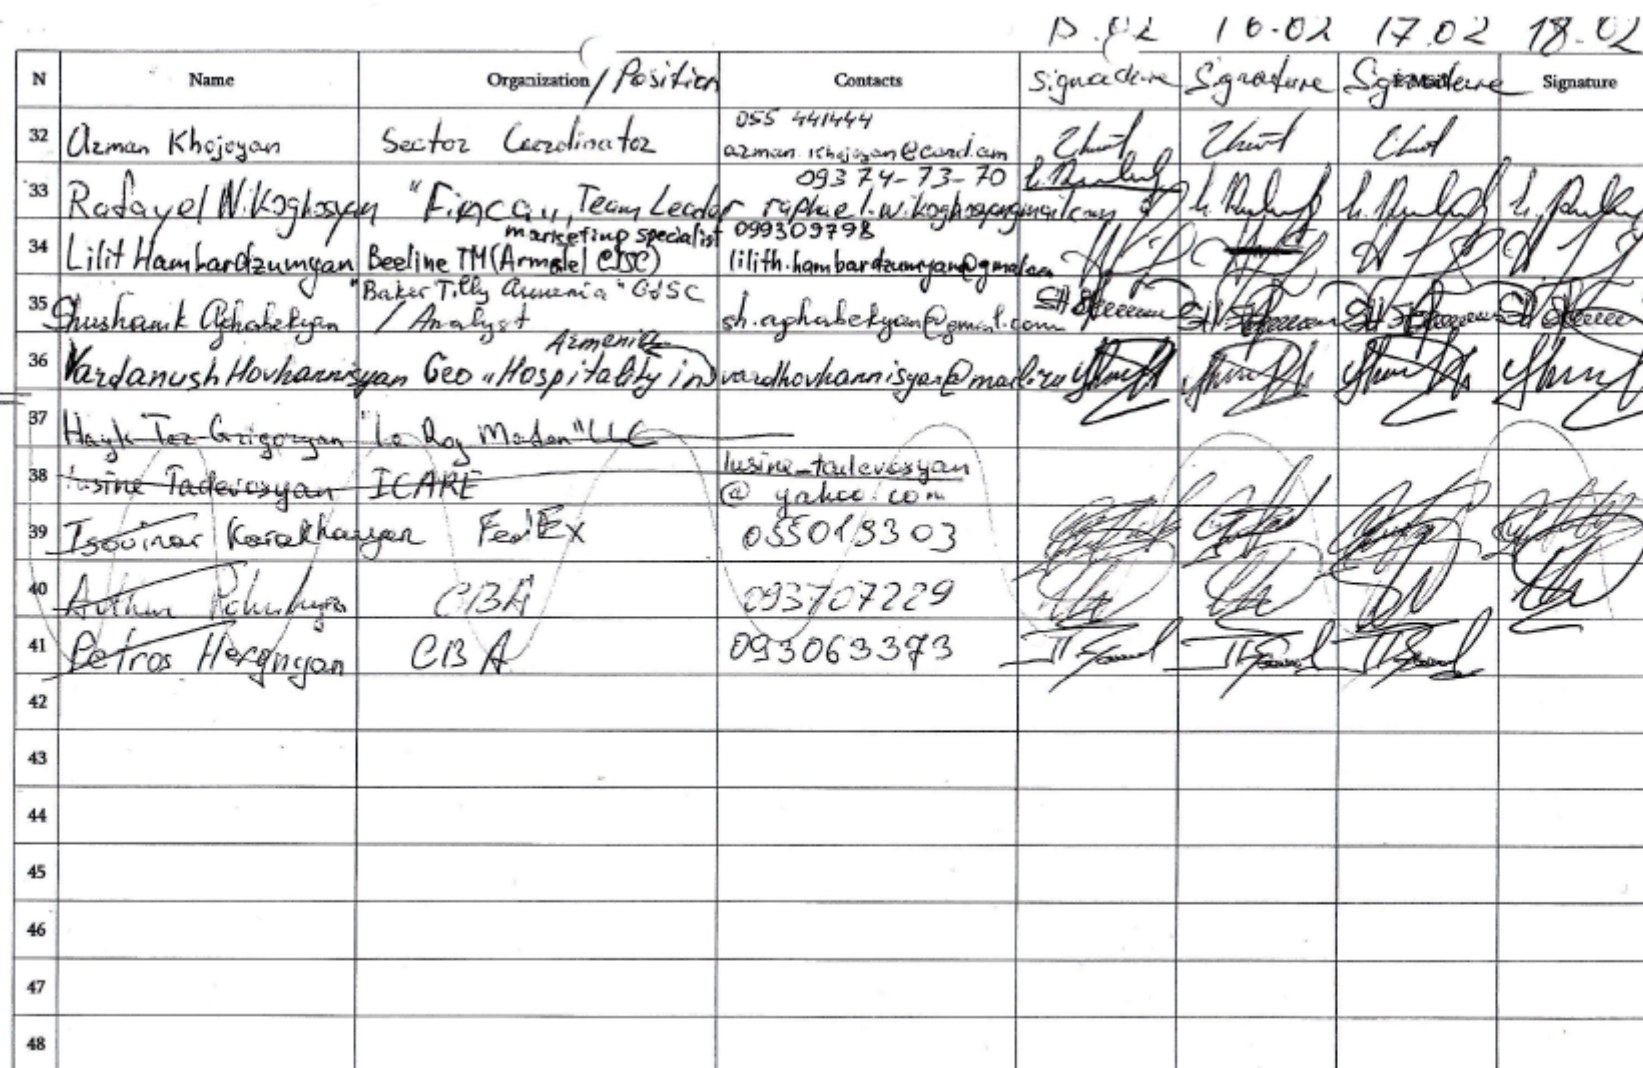 15.02 16.02 17.02 18.02
N Name Organization / Position Contacts Signature Signature Signature Signature
32 Arman Khojoyan Sector Coordinator 055 441444
arman.khojoyan@card.am
33 Rafayel W. Koghosyan "Finca", Team Leader 093 74-73-70
raphael.w.koghosyan@gmail.com
34 Lilit Hambardzumyan Beeline TM (Armetel CJSC) marketing specialist 099309798
lilith.hambardzumyan@gmail.com
35 Shushanik Aghabekyan "Baker Tilly Armenia" CJSC
/ Analyst sh.aghabekyan@gmail.com
36 Vardanush Hovhannisyan Geo "Hospitality in Armenia vardhovhannisyan@mail.ru
37 Hayk Ter-Grigoryan LLC
38 Lusine Tadevosyan ICARE lusine_tadevosyan
@yahoo.com
39 Tsovinar Karakhanyan FedEx 055019303
40 Arthur CBA 093707229
41 Petros CBA 093063373
42
43
44
45
46
47
48